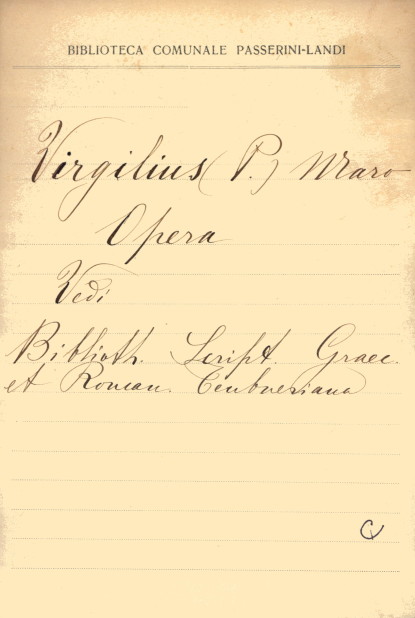 BIBLIOTECA COMUNALE PASSERINI-LANDI
Virgilius (P.) Maro
Opera
Vedi
Biblioth. Script. Graec.
et Roman. Teubneriana